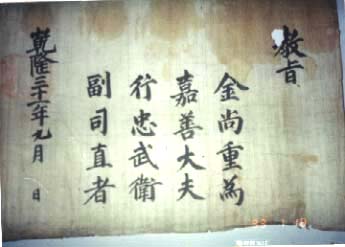 教旨
金尚重爲
嘉善大夫
行忠武衛
副司直者
乾隆三十一年九月 日